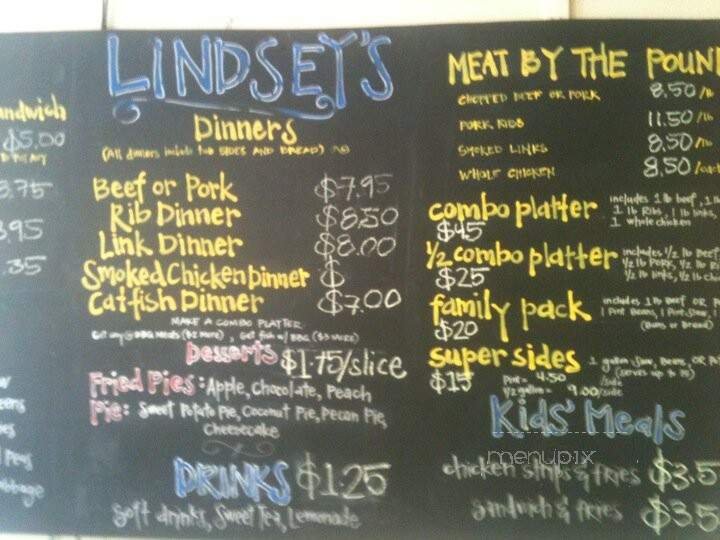 andwich
$5.00
3.75
.95
.35
eens
Peas
abbage
LINDSEY'S
Dinners
(All dinners include two SIDES AND BREAD)
Beef or Pork $7.95
Rib Dinner $8.50
Link Dinner $8.00
Smoked Chicken Dinner $
Catfish Dinner $7.00
MAKE A COMBO PLATTER
Get any BBQ Meats ($2 more), Get fish w/ BBQ ($3 more)
Desserts $1.75/slice
Fried Pies: Apple, Chocolate, Peach
Pie: Sweet Potato Pie, Coconut Pie, Pecan Pie,
Cheesecake
DRINKS $1.25
Soft drinks, Sweet Tea, Lemonade
MEAT BY THE POUN
CHOPPED BEEF OR PORK 8.50/lb
PORK RIBS 11.50/lb
SMOKED LINKS 8.50/lb
WHOLE CHICKEN 8.50/
combo platter includes 1 lb beef, 1 lb
$45 1 lb Ribs, 1 lb links,
1 whole chicken
1/2 combo platter includes 1/2 lb Beef
$25 1/2 lb Pork, 1/2 lb
1/2 lb links, 1/2
family pack includes 1 lb Beef OR
$20 1 Pint Beans, 1 Pint Slaw, 1
(Buns or Bread)
super sides 1 gallon Slaw, Beans, OR
$15 (serves up to 35)
Pint = 4.50 /side
1/2 gallon = 9.00/side
Kids' Meals
menupix
chicken strips & fries $3.5
sandwich & fries $3.5